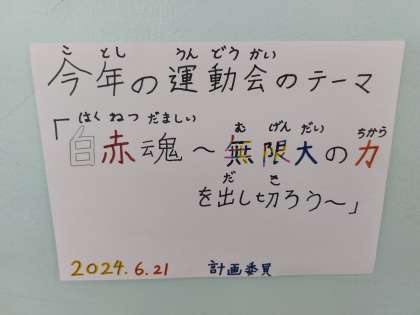 ことし うんどうかい
今年の運動会のテーマ
はく ねつ だましい む げん だい ちから
「白赤魂～無限大の力
だ き
を出し切ろう～」
2024.6.21 計画委員